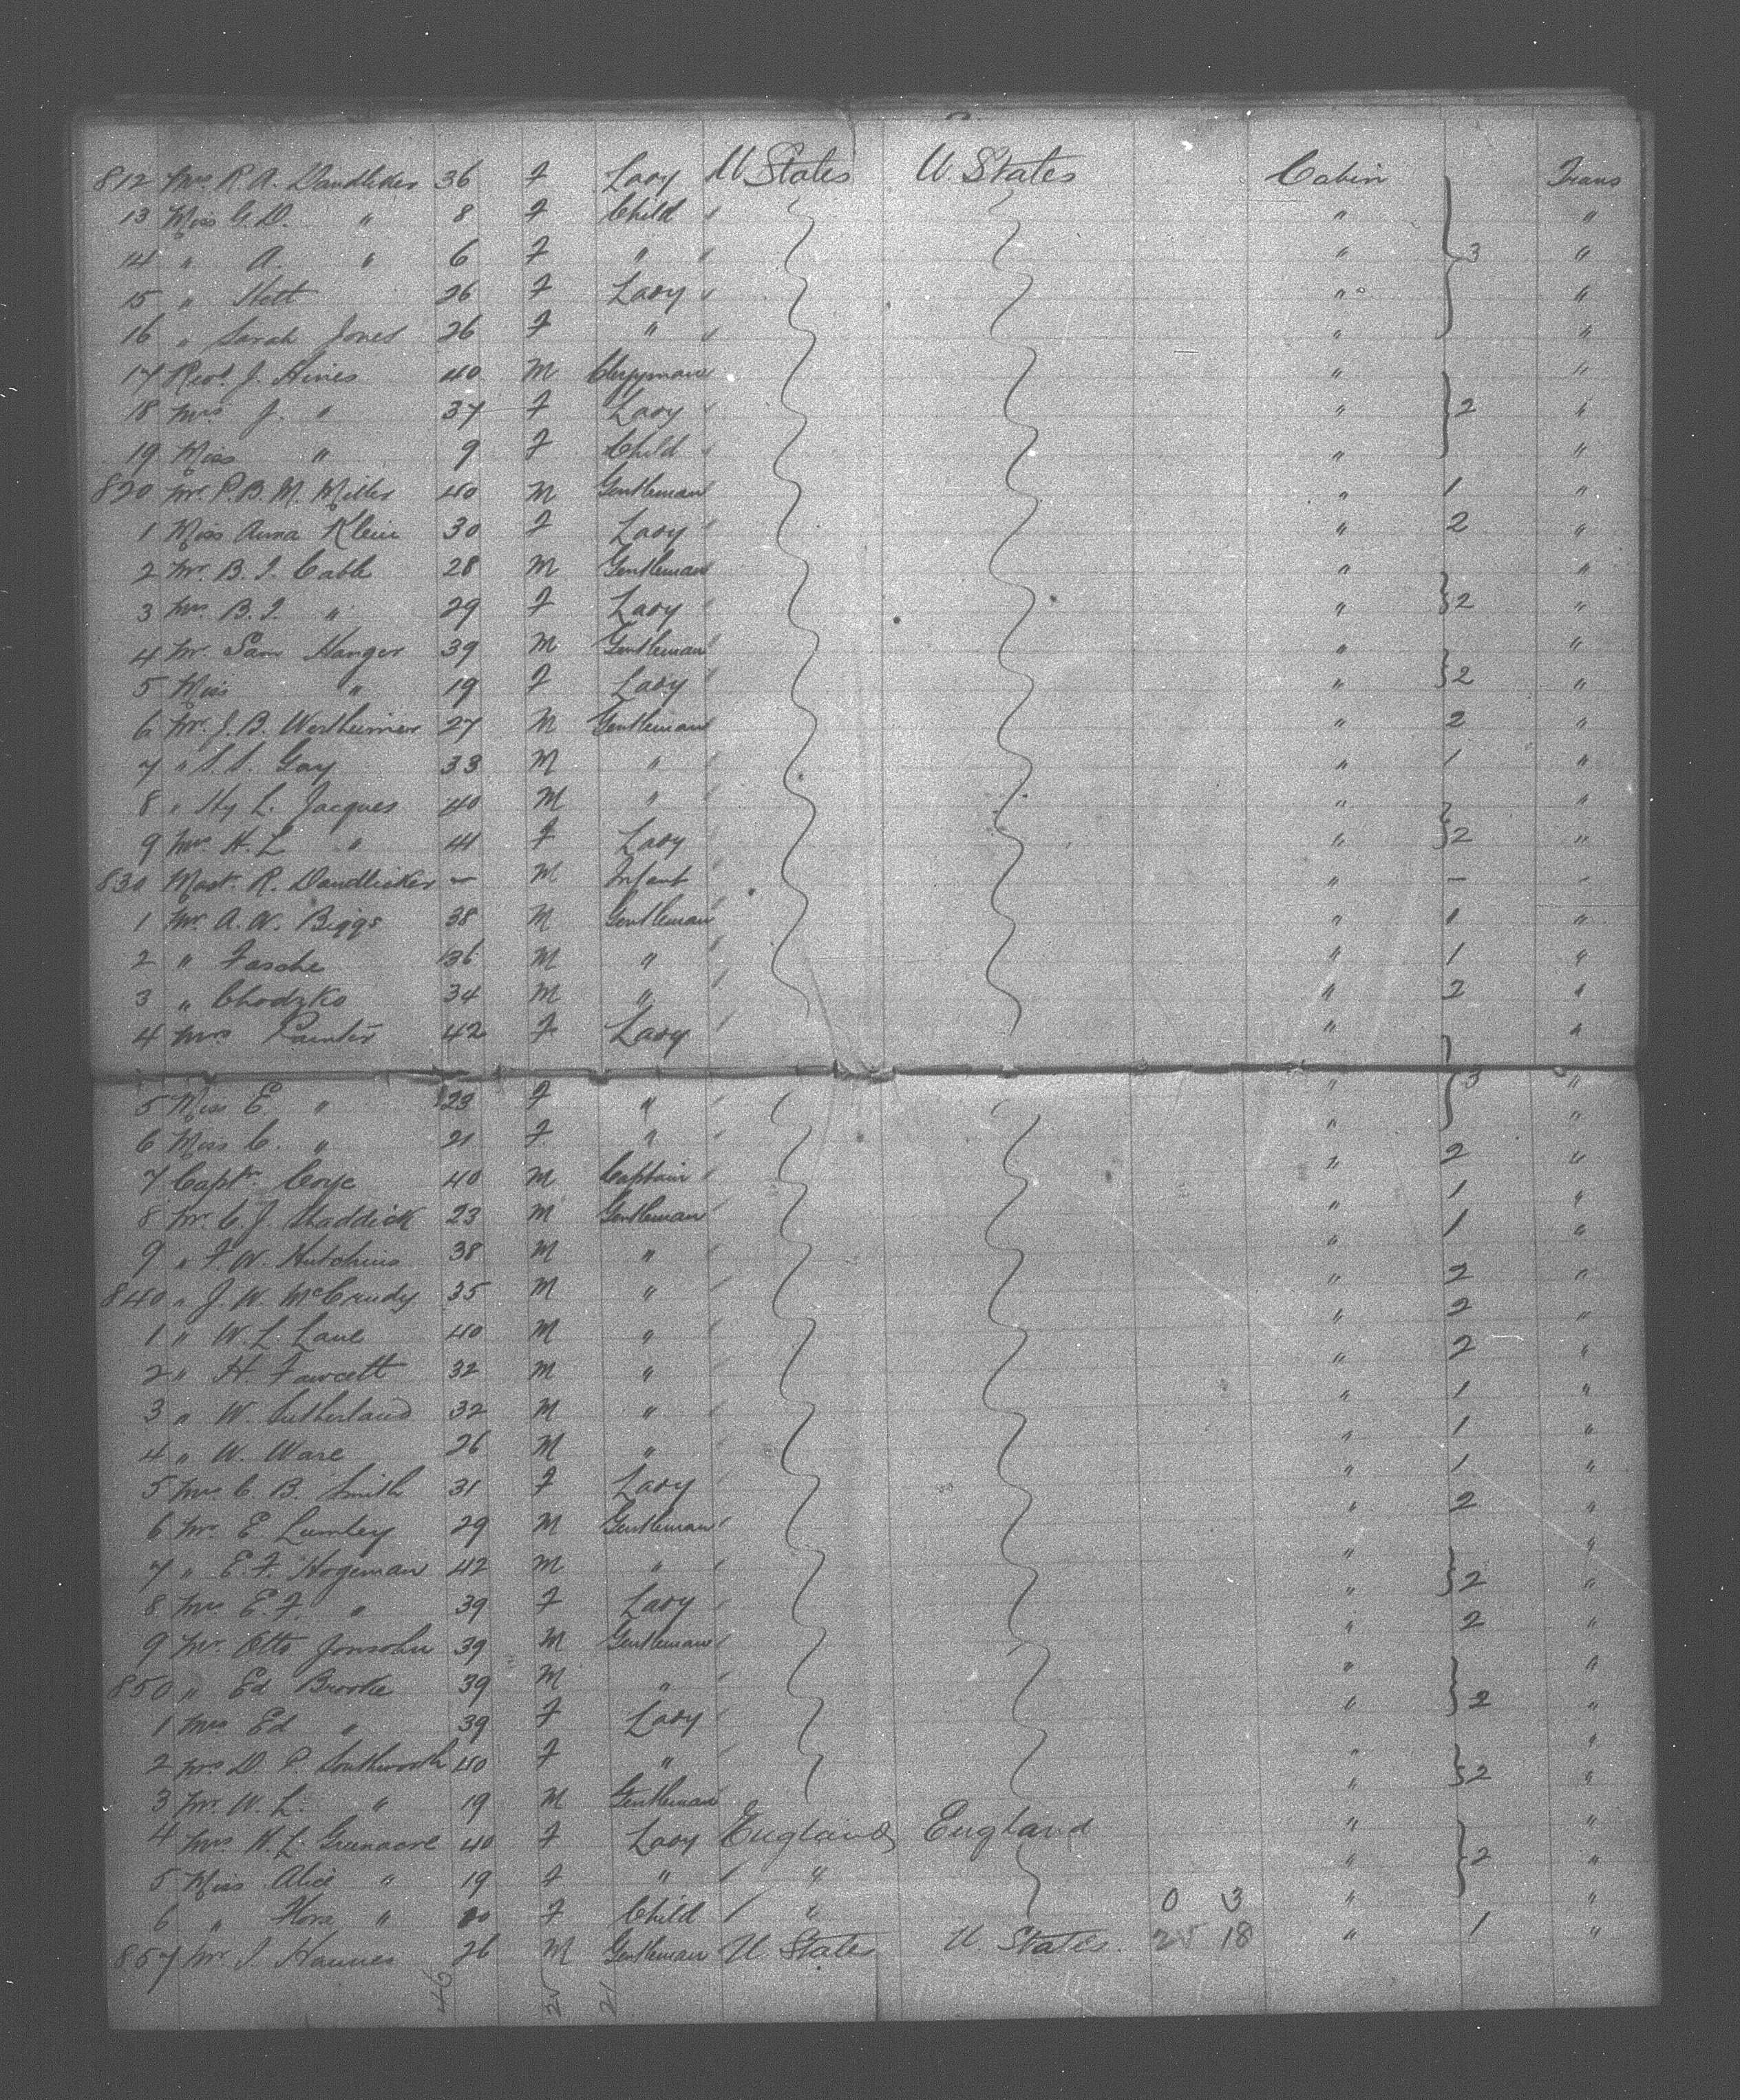 812 Mrs R. A. Dandliker 36 F Lady U States U. States Cabin Trans
13 Miss G. D. " 8 F Child " " "
14 " A. " 6 F " " " 3 "
15 " Hett 26 F Lady " " "
16 " Sarah Jones 26 F " " " "
17 Revd. J. Hines 40 M Clergyman " "
18 Mrs J. " 37 F Lady " " 2 "
19 Miss " 9 F Child " " "
820 Mr. P. B. M. Miller 40 M Gentleman " 1 "
1 Miss Anna Klein 30 F Lady " 2 "
2 Mr. B. I. Cable 28 M Gentleman " "
3 Mrs B. I. " 29 F Lady " 2 "
4 Mr. Sam Hanger 39 M Gentleman " "
5 Miss " 19 F Lady " 2 "
6 Mr. J. B. Wertheimer 27 M Gentleman " 2 "
7 " S. S. Gay 33 M " " 1 "
8 " Hy L. Jacques 40 M " " "
9 Mrs H. L " 41 F Lady " 2 "
830 Mast. R. Dandliker - M Infant " - -
1 Mr. A. W. Biggs 38 M Gentleman " 1 "
2 " Fasche 36 M " " 1 "
3 " Chodzko 34 M " " 2 "
4 Mrs Painter 42 F Lady " "
5 Miss E. " 23 F " " 3 "
6 Miss C. " 21 F " " "
7 Captn. Coye 40 M Captain " 2 "
8 Mr. C. J. Shaddick 23 M Gentleman " 1 "
9 " F. W. Hutchins 38 M " " 1 "
840 " J. W. McCrudy 35 M " " 2 "
1 " W. L. Lane 40 M " " 2 "
2 " H. Fawcett 32 M " " 2 "
3 " W. Sutherland 32 M " " 1 "
4 " W. Ware 26 M " " 1 "
5 Mrs C. B. Smith 31 F Lady " 1 "
6 Mr. E Lumley 29 M Gentleman " 2 "
7 " E. F. Hogeman 42 M " " "
8 Mrs E. F. " 39 F Lady " 2 "
9 Mr. Otto Jonsohn 39 M Gentleman " 2 "
850 " Ed Brooke 39 M " " "
1 Mrs Ed " 39 F Lady " 2 "
2 Mrs D. P. Southworth 40 F " " "
3 Mr. W. L. " 19 M Gentleman " 2 "
4 Mrs H. L. Greenacre 40 F Lady England England " "
5 Miss Alice " 19 F " " " 2 "
6 " Flora " 10 F Child " 0 3 " "
857 Mr. I. Hannes 26 M Gentleman U State U. States. 25 18 " 1 "
46 25 21